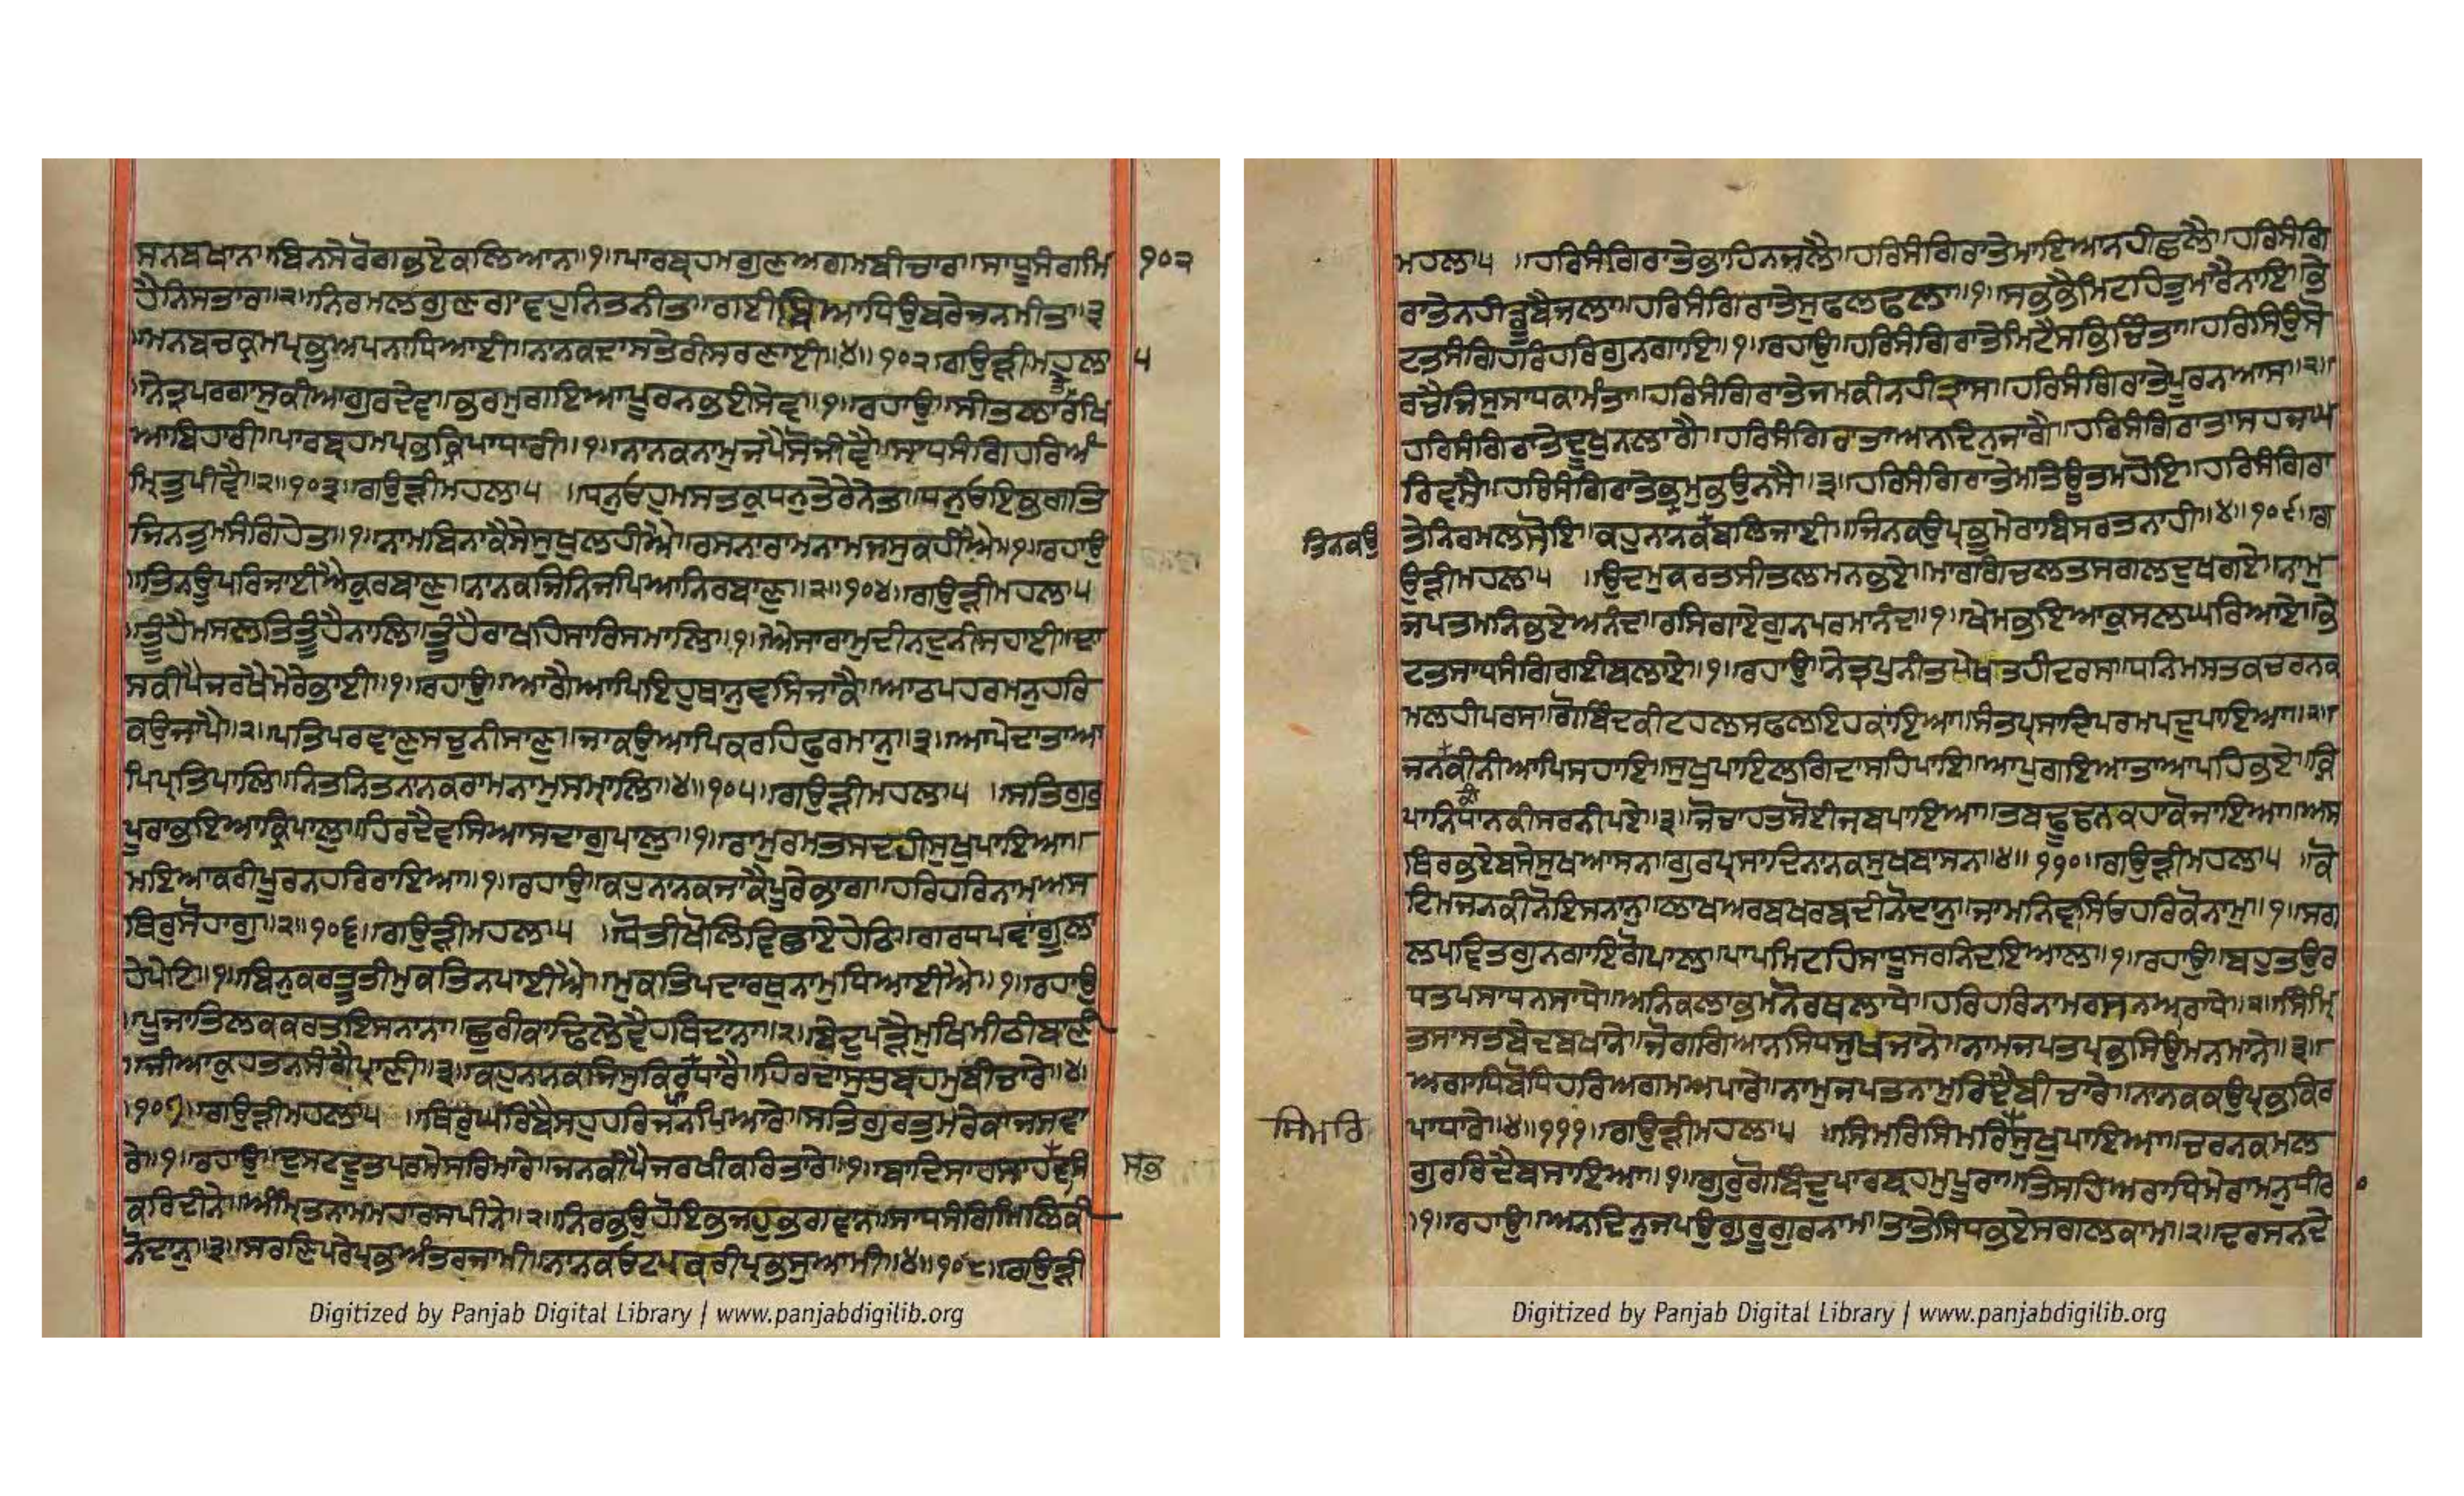 ਸਨਬਖਾਨਾ॥ਬਿਨਸੇਰੋਗਭਏਕਲਿਆਨਾ॥੧॥ਪਾਰਬ੍ਰਹਮਗੁਣਅਗਮਬੀਚਾਰਾ॥ਸਾਧੂਸੰਗਮਿ ੧੦੨
ਹੈਨਿਸਤਾਰਾ॥੨॥ਨਿਰਮਲਗੁਣਗਾਵਹੁਨਿਤਨੀਤਾ॥ਗਈਬਿਆਧਿਉਬਰੇਜਨਮੀਤਾ॥੩
॥ਮਨਬਚਕ੍ਰਮਪ੍ਰਭੁਅਪਨਾਧਿਆਈ॥ਨਾਨਕਦਾਸਤੇਰੀਸਰਣਾਈ॥੪॥੧੦੨ਗਉੜੀਮਹਲਾ ੫
॥ਨੇਤ੍ਰਪਰਗਾਸੁਕੀਆਗੁਰਦੇਵ॥ਭਰਮੁਗਇਆਪੂਰਨਭਈਸੇਵ॥੧॥ਰਹਾਉ॥ਸੀਤਲਾਰਖਿ
ਆਬਿਹਾਰੀ॥ਪਾਰਬ੍ਰਹਮਪ੍ਰਭਕਿਰਪਾਧਾਰੀ॥੧॥ਨਾਨਕਨਾਮੁਜਪੈਸੋਜੀਵੈ॥ਸਾਧਸੰਗਿਹਰਿਅੰ
ਮ੍ਰਿਤੁਪੀਵੈ॥੨॥੧੦੩॥ਗਉੜੀਮਹਲਾ੫ ॥ਧਨੁਓਹੁਮਸਤਕੁਧਨੁਤੇਰੇਨੇਤ॥ਧਨੁਓਇਭਗਤ
ਜਿਨਤੁਮਸੰਗਿਹੇਤ॥੧॥ਨਾਮਬਿਨਾਕੈਸੇਸੁਖੁਲਹੀਐ॥ਰਸਨਾਰਾਮਨਾਮਜਸੁਕਹੀਐ॥੧॥ਰਹਾਉ
॥ਤਿਨਊਪਰਿਜਾਈਐਕੁਰਬਾਣੁ॥ਨਾਨਕਜਿਨਿਜਪਿਆਨਿਰਬਾਣੁ॥੨॥੧੦੪॥ਗਉੜੀਮਹਲਾ੫
॥ਤੂੰਹੈਮਸਲਤਿਤੂੰਹੈਨਾਲਿ॥ਤੂੰਹੈਰਾਖਹਿਸਾਰਿਸਮਾਲਿ॥੧॥ਐਸਾਰਾਮੁਦੀਨਦੁਨੀਸਹਾਈ॥ਦਾ
ਸਕੀਪੈਜਰਖੈਮੇਰੇਭਾਈ॥੧॥ਰਹਾਉ॥ਆਗੈਆਪਿਇਹੁਥਾਨੁਵਸਿਜਾਕੈ॥ਆਠਪਹਰਮਨੁਹਰਿ
ਕਉਜਾਪੈ॥੨॥ਪਤਿਪਰਵਾਣੁਸਚੁਨੀਸਾਣੁ॥ਜਾਕਉਆਪਿਕਰਹਿਫੁਰਮਾਨੁ॥੩॥ਆਪੇਦਾਤਾਆ
ਪਿਪ੍ਰਤਿਪਾਲਿ॥ਨਿਤਨਿਤਨਾਨਕਰਾਮਨਾਮੁਸਮਾਲਿ॥੪॥੧੦੫॥ਗਉੜੀਮਹਲਾ੫ ॥ਸਤਿਗੁਰੁ
ਪੂਰਾਭਇਆਕ੍ਰਿਪਾਲੁ॥ਹਿਰਦੈਵਸਿਆਸਦਾਗੁਪਾਲੁ॥੧॥ਰਾਮੁਰਮਤਸਦਹੀਸੁਖੁਪਾਇਆ॥
ਮਇਆਕਰੀਪੂਰਨਹਰਿਰਾਇਆ॥੧॥ਰਹਾਉ॥ਕਹੁਨਾਨਕਜਾਕੈਪੂਰੇਭਾਗ॥ਹਰਿਹਰਿਨਾਮਅਸ
ਥਿਰੁਸੋਹਾਗੁ॥੨॥੧੦੬॥ਗਉੜੀਮਹਲਾ੫ ॥ਧੋਤੀਖੋਲਿਵਿਛਾਏਹੇਠਿ॥ਗਰਧਪਵਾਂਗੂਲਾ
ਹੇਪੇਟਿ॥੧॥ਬਿਨੁਕਰਤੂਤੀਮੁਕਤਿਨਪਾਈਐ॥ਮੁਕਤਿਪਦਾਰਥੁਨਾਮੁਧਿਆਈਐ॥੧॥ਰਹਾਉ
॥ਪੂਜਾਤਿਲਕਕਰਤਇਸਨਾਨਾ॥ਛੁਰੀਕਾਢਿਲੇਵੈਹਥਿਦਾਨਾ॥੨॥ਬੇਦੁਪੜੈਮੁਖਿਮੀਠੀਬਾਣੀ
॥ਜੀਆਕੁਹਤਨਸੰਗੈਪ੍ਰਾਣੀ॥੩॥ਕਹੁਨਾਨਕਜਿਸੁਕਿਰਪਾਧਾਰੈ॥ਹਿਰਦਾਸੁਧੁਬ੍ਰਹਮੁਬੀਚਾਰੇ॥੪॥
॥੧੦੭॥ਗਉੜੀਮਹਲਾ੫ ॥ਥਿਰੁਘਰਿਬੈਸਹੁਹਰਿਜਨਪਿਆਰੇ॥ਸਤਿਗੁਰਤੁਮਰੇਕਾਜਸਵਾ
ਰੇ॥੧॥ਰਹਾਉ॥ਦੁਸਟਦੂਤਪਰਮੇਸਰਿਮਾਰੇ॥ਜਨਕੀਪੈਜਰਖੀਕਰਤਾਰੇ॥੧॥ਬਾਦਿਸਾਹਸਾਹਵਸਿ ਸਭ
ਕਰਿਦੀਨੇ॥ਅੰਮ੍ਰਿਤਨਾਮਮਹਾਰਸਪੀਨੇ॥੨॥ਨਿਰਭਉਹੋਇਭਜਹੁਭਗਵਾਨ॥ਸਾਧਸੰਗਿਮਿਲਿਕੀ
ਨੋਦਾਨੁ॥੩॥ਸਰਣਿਪਰੇਪ੍ਰਭਅੰਤਰਜਾਮੀ॥ਨਾਨਕਓਟਪਕਰੀਪ੍ਰਭਸੁਆਮੀ॥੪॥੧੦੮॥ਗਉੜੀ
Digitized by Panjab Digital Library | www.panjabdigilib.org
ਮਹਲਾ੫ ॥ਹਰਿਸੰਗਿਰਾਤੇਭਾਹਿਨਜਲੈ॥ਹਰਿਸੰਗਿਰਾਤੇਮਾਇਆਨਹੀਛਲੈ॥ਹਰਿਸੰਗਿ
ਰਾਤੇਨਹੀਡੂਬੈਜਲਾ॥ਹਰਿਸੰਗਿਰਾਤੇਸੁਫਲਫਲਾ॥੧॥ਸਭਭੈਮਿਟਹਿਤੁਮਾਰੈਨਾਇ॥ਭੇ
ਟਤਸੰਗਿਹਰਿਹਰਿਗੁਨਗਾਇ॥੧॥ਰਹਾਉ॥ਹਰਿਸੰਗਿਰਾਤੇਮਿਟੈਸਭਚਿੰਤਾ॥ਹਰਿਸਿਉਸੋ
ਰਚੈਜਿਸੁਸਾਧਕਾਮੰਤਾ॥ਹਰਿਸੰਗਿਰਾਤੇਜਮਕੀਨਹੀਤ੍ਰਾਸ॥ਹਰਿਸੰਗਿਰਾਤੇਪੂਰਨਆਸ॥੨॥
ਹਰਿਸੰਗਿਰਾਤੇਦੂਖੁਨਲਾਗੈ॥ਹਰਿਸੰਗਿਰਾਤਾਅਨਦਿਨੁਜਾਗੈ॥ਹਰਿਸੰਗਿਰਾਤਾਸਹਜਘ
ਰਿਵਸੈ॥ਹਰਿਸੰਗਿਰਾਤੇਭ੍ਰਮੁਭਉਨਸੈ॥੩॥ਹਰਿਸੰਗਿਰਾਤੇਮਤਿਊਤਮਹੋਇ॥ਹਰਿਸੰਗਿਰਾ
ਤਿਨਕਉ ਤੇਨਿਰਮਲਸੋਇ॥ਕਹੁਨਾਨਕਬਲਿਜਾਈ॥ਜਿਨਕਉਪ੍ਰਭੁਮੇਰਾਬਿਸਰਤਨਾਹੀ॥੪॥੧੦੯॥ਗ
ਉੜੀਮਹਲਾ੫ ॥ਉਦਮੁਕਰਤਸੀਤਲਮਨਭਏ॥ਮਾਰਗਿਚਲਤਸਗਲਦੁਖਗਏ॥ਨਾਮੁ
ਜਪਤਮਨਿਭਏਅਨੰਦਾ॥ਰਸਿਗਾਏਗੁਨਪਰਮਾਨੰਦਾ॥੧॥ਖੇਮਭਇਆਕੁਸਲਘਰਿਆਏ॥ਭੇ
ਟਤਸਾਧਸੰਗਿਗਈਬਲਾਏ॥੧॥ਰਹਾਉ॥ਨੇਤ੍ਰਪੁਨੀਤਪੇਖਤਹੀਦਰਸ॥ਧਨਿਮਸਤਕਚਰਨਕ
ਮਲਹੀਪਰਸ॥ਗੋਬਿੰਦਕੀਟਹਲਸਫਲਇਹਕਾਂਇਆ॥ਸੰਤਪ੍ਰਸਾਦਿਪਰਮਪਦੁਪਾਇਆ॥੨॥
ਜਨਕੀਨੀਆਪਿਸਹਾਇ॥ਸੁਖੁਪਾਇਲਗਿਦਾਸਹਿਪਾਇ॥ਆਪੁਗਇਆਤਾਆਪਹਿਭਏ॥ਕ੍ਰਿ
ਪਾਨਿਧਾਨਕੀਸਰਨੀਪਏ॥੩॥ਜੋਚਾਹਤਸੋਈਜਬਪਾਇਆ॥ਤਬਢੂਢਨਕਹਾਕੋਜਾਇਆ॥ਅਸ
ਥਿਰਭਏਬਸੇਸੁਖਆਸਨ॥ਗੁਰਪ੍ਰਸਾਦਿਨਾਨਕਸੁਖਬਾਸਨ॥੪॥੧੧੦॥ਗਉੜੀਮਹਲਾ੫ ॥ਕੋ
ਟਿਮਜਨਕੀਨੋਇਸਨਾਨੁ॥ਲਾਖਅਰਬਖਰਬਦੀਨੋਦਾਨੁ॥ਜਾਮਨਿਵਸਿਓਹਰਿਕੋਨਾਮੁ॥੧॥ਸਗ
ਲਪਵਿਤਗੁਨਗਾਇਗੋਪਾਲ॥ਪਾਪਮਿਟਹਿਸਾਧੂਸਰਨਿਦਇਆਲ॥੧॥ਰਹਾਉ॥ਬਹੁਤੁਉਰ
ਧਤਪਸਾਧਨਸਾਧੇ॥ਅਨਿਕਲਾਭਮਨੋਰਥਲਾਧੇ॥ਹਰਿਹਰਿਨਾਮਰਸਨਆਰਾਧੇ॥੨॥ਸਿੰਮ੍ਰਿ
ਤਸਾਸਤਬੇਦਬਖਾਨੇ॥ਜੋਗਗਿਆਨਸਿਧਸੁਖਜਾਨੇ॥ਨਾਮਜਪਤਪ੍ਰਭਸਿਉਮਨਮਾਨੇ॥੩॥
ਅਗਾਧਿਬੋਧਿਹਰਿਅਗਮਅਪਾਰੇ॥ਨਾਮੁਜਪਤਨਾਮੁਰਿਦੈਬੀਚਾਰੇ॥ਨਾਨਕਕਉਪ੍ਰਭਕਿਰ
ਸਿਮਰਿ ਪਾਧਾਰੇ॥੪॥੧੧੧॥ਗਉੜੀਮਹਲਾ੫ ॥ਸਿਮਰਿਸਿਮਰਿਸੁਖੁਪਾਇਆ॥ਚਰਨਕਮਲ
ਗੁਰਰਿਦੈਬਸਾਇਆ॥੧॥ਗੁਰਗੋਬਿੰਦੁਪਾਰਬ੍ਰਹਮੁਪੂਰਾ॥ਤਿਸਹਿਅਰਾਧਿਮੇਰਾਮਨੁਧੀਰ
॥੧॥ਰਹਾਉ॥ਅਨਦਿਨੁਜਪਉਗੁਰੂਗੁਰਨਾਮ॥ਤਾਤੇਸਿਧਭਏਸਗਲਕਾਮ॥੨॥ਦਰਸਨਦੇ
Digitized by Panjab Digital Library | www.panjabdigilib.org